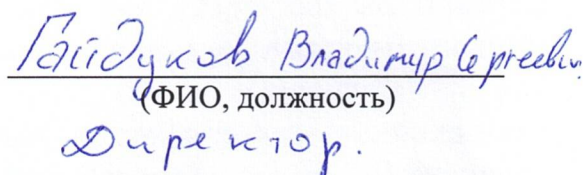 Гайдуков Владимир Сергеевич
(ФИО, должность)
Директор.